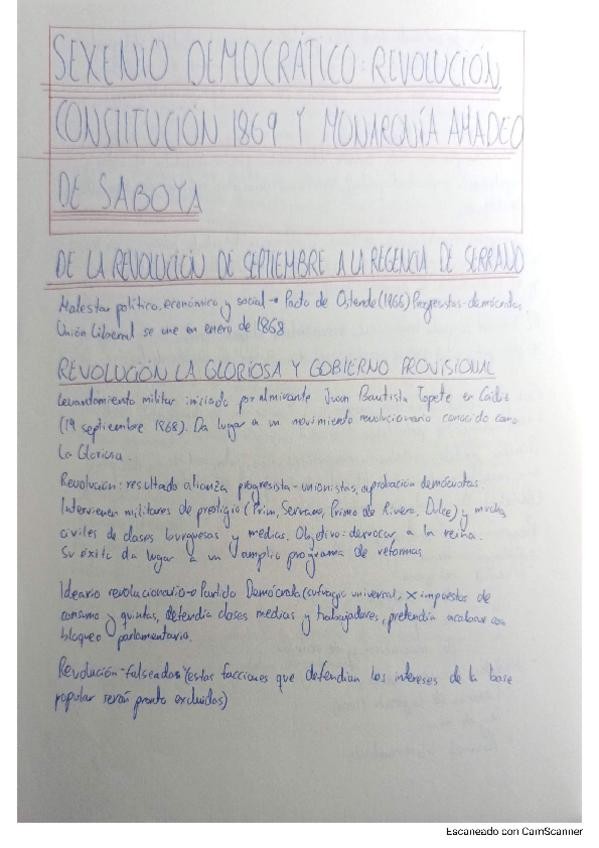 SEXENIO DEMOCRÁTICO: REVOLUCIÓN,
CONSTITUCIÓN 1869 Y MONARQUÍA AMADEO
DE SABOYA
DE LA REVOLUCIÓN DE SEPTIEMBRE A LA REGENCIA DE SERRANO
Malestar político, económico y social → Pacto de Ostende (1866) Progresistas-demócratas
Unión Liberal se une en enero de 1868
REVOLUCIÓN LA GLORIOSA Y GOBIERNO PROVISIONAL
Levantamiento militar iniciado por almirante Juan Bautista Topete en Cádiz
(19 septiembre 1868). Da lugar a un movimiento revolucionario conocido como
La Gloriosa.
Revolución: resultado alianza progresista-unionistas, aprobación demócratas.
Intervienen militares de prestigio (Prim, Serrano, Primo de Rivera, Dulce) y muchos
civiles de clases burguesas y medias. Objetivo: derrocar a la reina.
Su éxito da lugar a un amplio programa de reformas
Ideario revolucionario → Partido Demócrata (sufragio universal, × impuestos de
consumo y quintas, defendía clases medias y trabajadores, pretendía acabar con
bloqueo parlamentario.
Revolución "falseada" (estas facciones que defendían los intereses de la base
popular serán pronto excluidas)
Escaneado con CamScanner